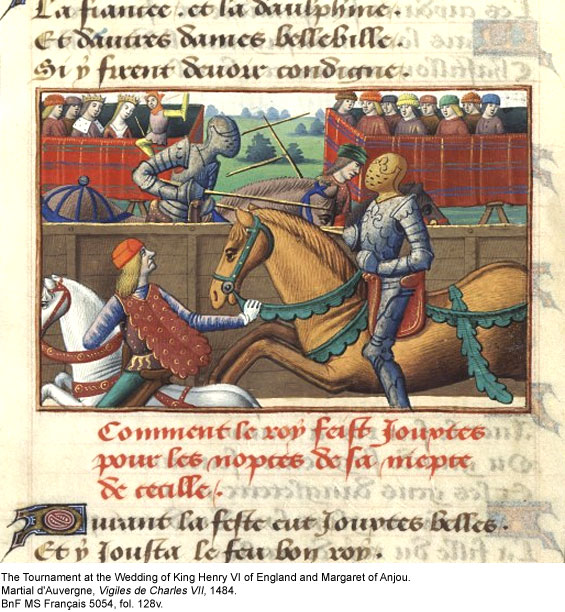 La fiancee. et la daulphine.
Et dautres dames bellebille.
Si y firent devoir condigne.
Comment le roy feist Jouxtes
pour les nopces de sa niepce
de cecille.
Durant la feste eut Jouxtes belles.
Et y Jousta le feu bon roy.
The Tournament at the Wedding of King Henry VI of England and Margaret of Anjou.
Martial d'Auvergne, Vigiles de Charles VII, 1484.
BnF MS Français 5054, fol. 128v.